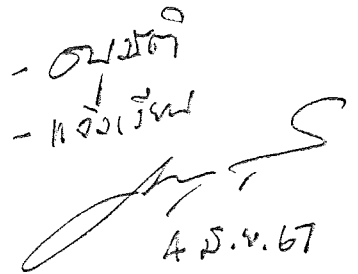 - อนุมัติ
- แจ้งเวียน
4 มิ.ย. 67